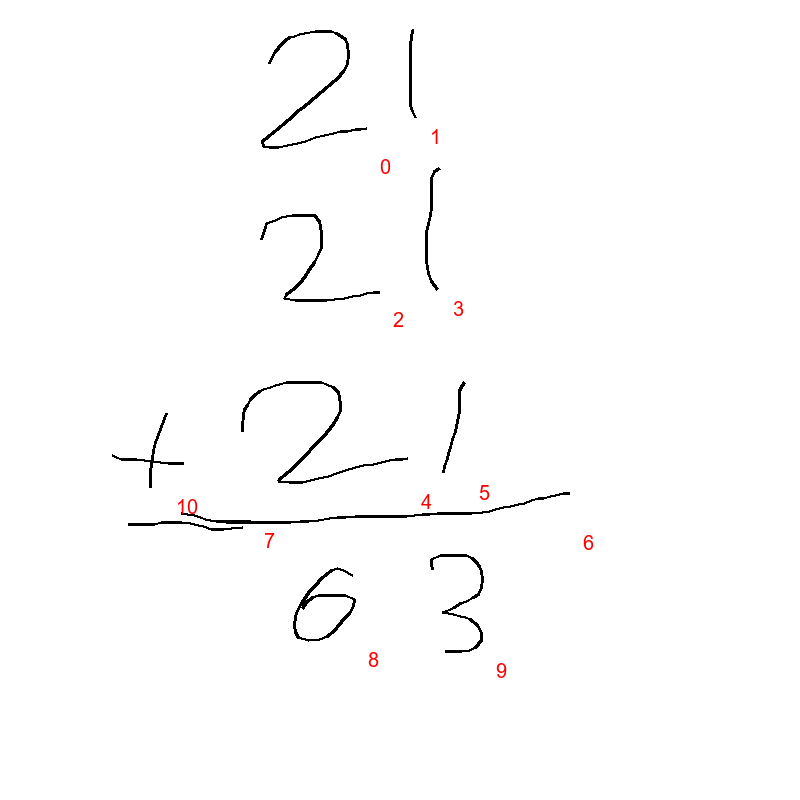 21
0 1
21
2 3
+ 21
10 4 5
7 6
63
8 9